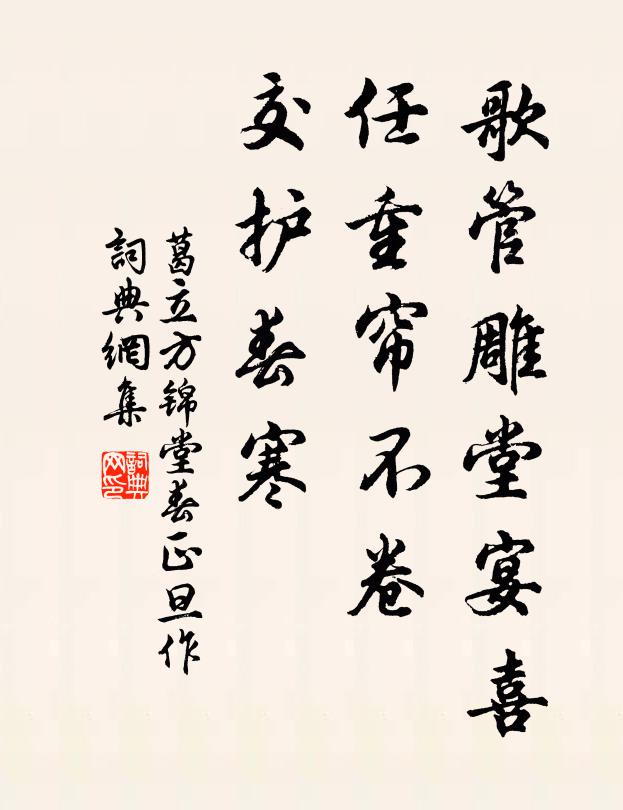 歌管雕堂宴喜
任重帘不卷
交护春寒
葛立方锦堂春正旦作
詞典網集
詞典网印